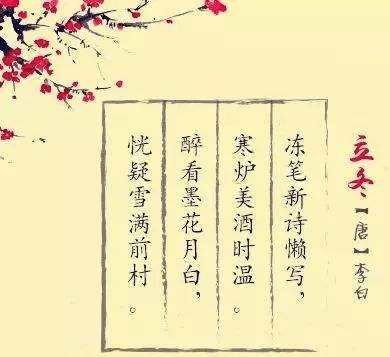 立冬【唐】李白
冻笔新诗懒写，
寒炉美酒时温。
醉看墨花月白，
恍疑雪满前村。